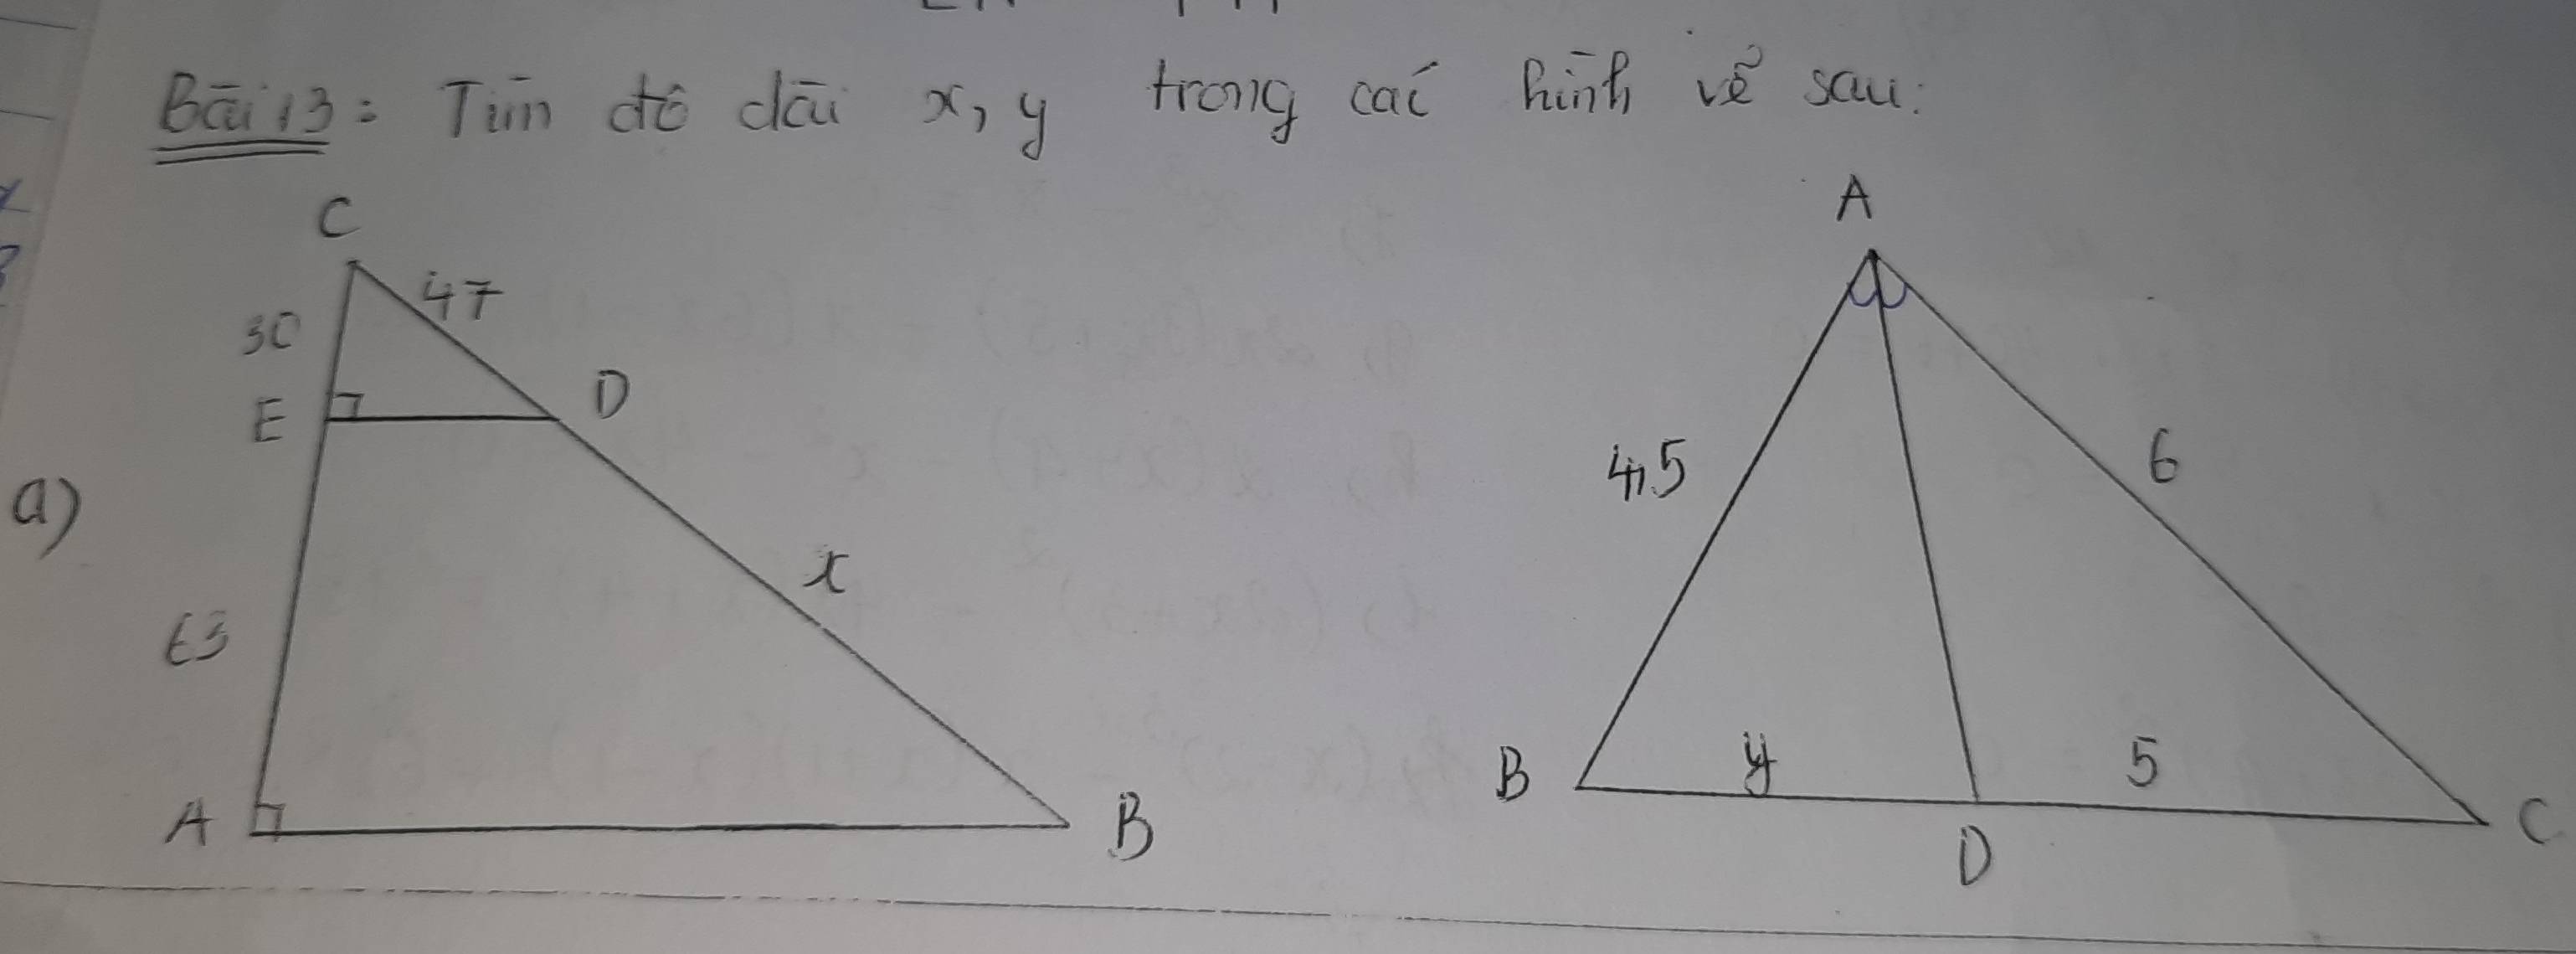 Bài 13: Tìm độ dài x, y trong các hình vẽ sau:
C
A
47
30
D
E
4,5
6
a)
x
63
y
5
B
A
B
C
D